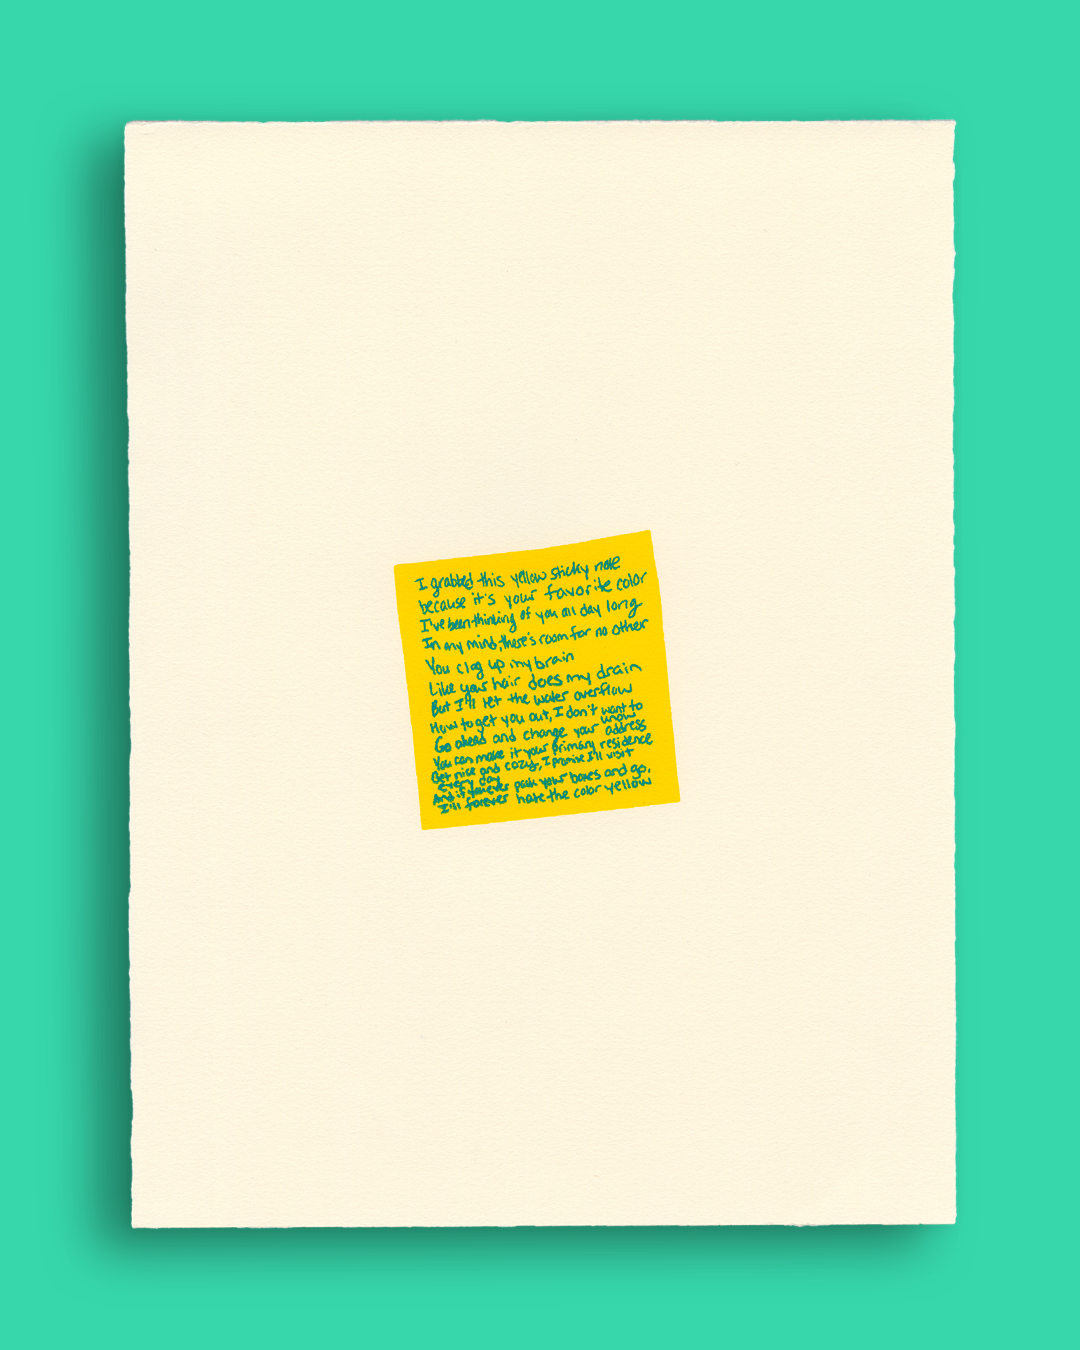 I grabbed this yellow sticky note
because it's your favorite color
I've been thinking of you all day long
In my mind, there's room for no other
You clog up my brain
Like your hair does my drain
But I'll let the water overflow
How to get you out, I don't want to
know
Go ahead and change your address
You can make it your primary residence
Get nice and cozy, I promise I'll visit
every day
And if you ever pack your boxes and go,
I'll forever hate the color yellow